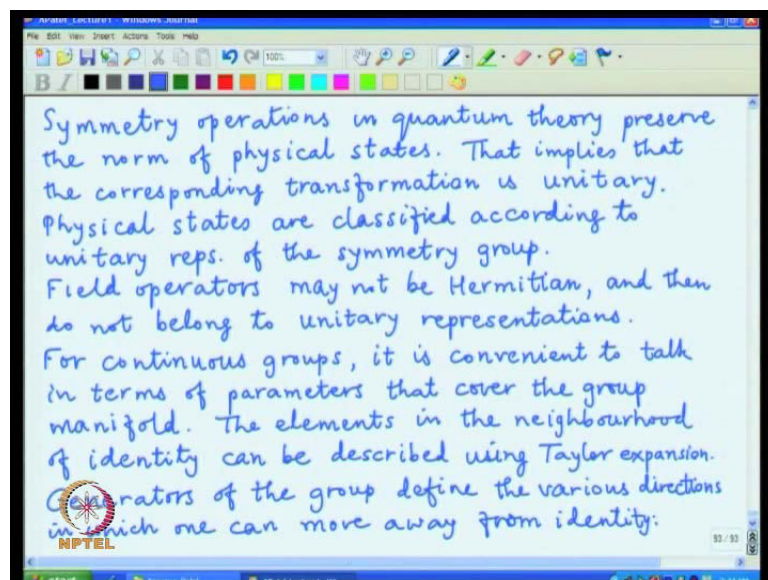 APatel_Lecture1 - Windows Journal
File Edit View Insert Actions Tools Help
100%
B I
Symmetry operations in quantum theory preserve
the norm of physical states. That implies that
the corresponding transformation is unitary.
Physical states are classified according to
unitary reps. of the symmetry group.
Field operators may not be Hermitian, and then
do not belong to unitary representations.
For continuous groups, it is convenient to talk
in terms of parameters that cover the group
manifold. The elements in the neighbourhood
of identity can be described using Taylor expansion.
Generators of the group define the various directions
in which one can move away from identity:
NPTEL
93/93
start